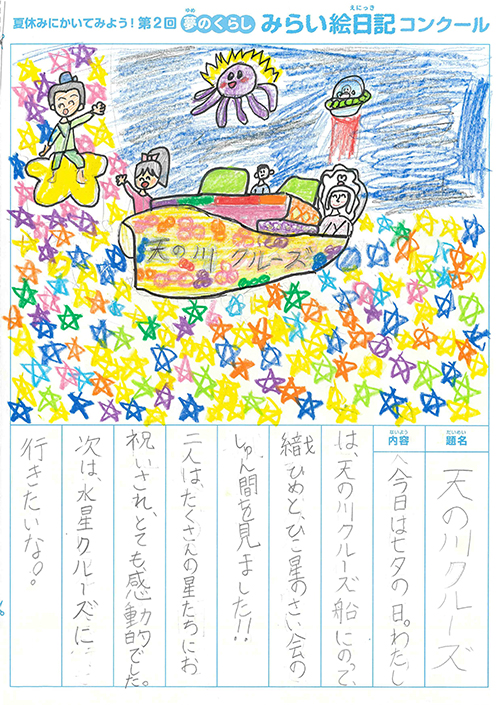 夏休みにかいてみよう!第2回 夢のくらし みらい絵日記 コンクール
ゆめ
えにっき
天の川 クルーズ
だいめい
題名
天の川クルーズ
ないよう
内容
今日は七夕の日。わたし
は、天の川クルーズ船にのって、
織ひめと、ひこ星のさい会の
しゅん間を見ました!!
二人は、たくさんの星たちにお
祝いされ、とても感動的でした。
次は、水星クルーズに
行きたいな。